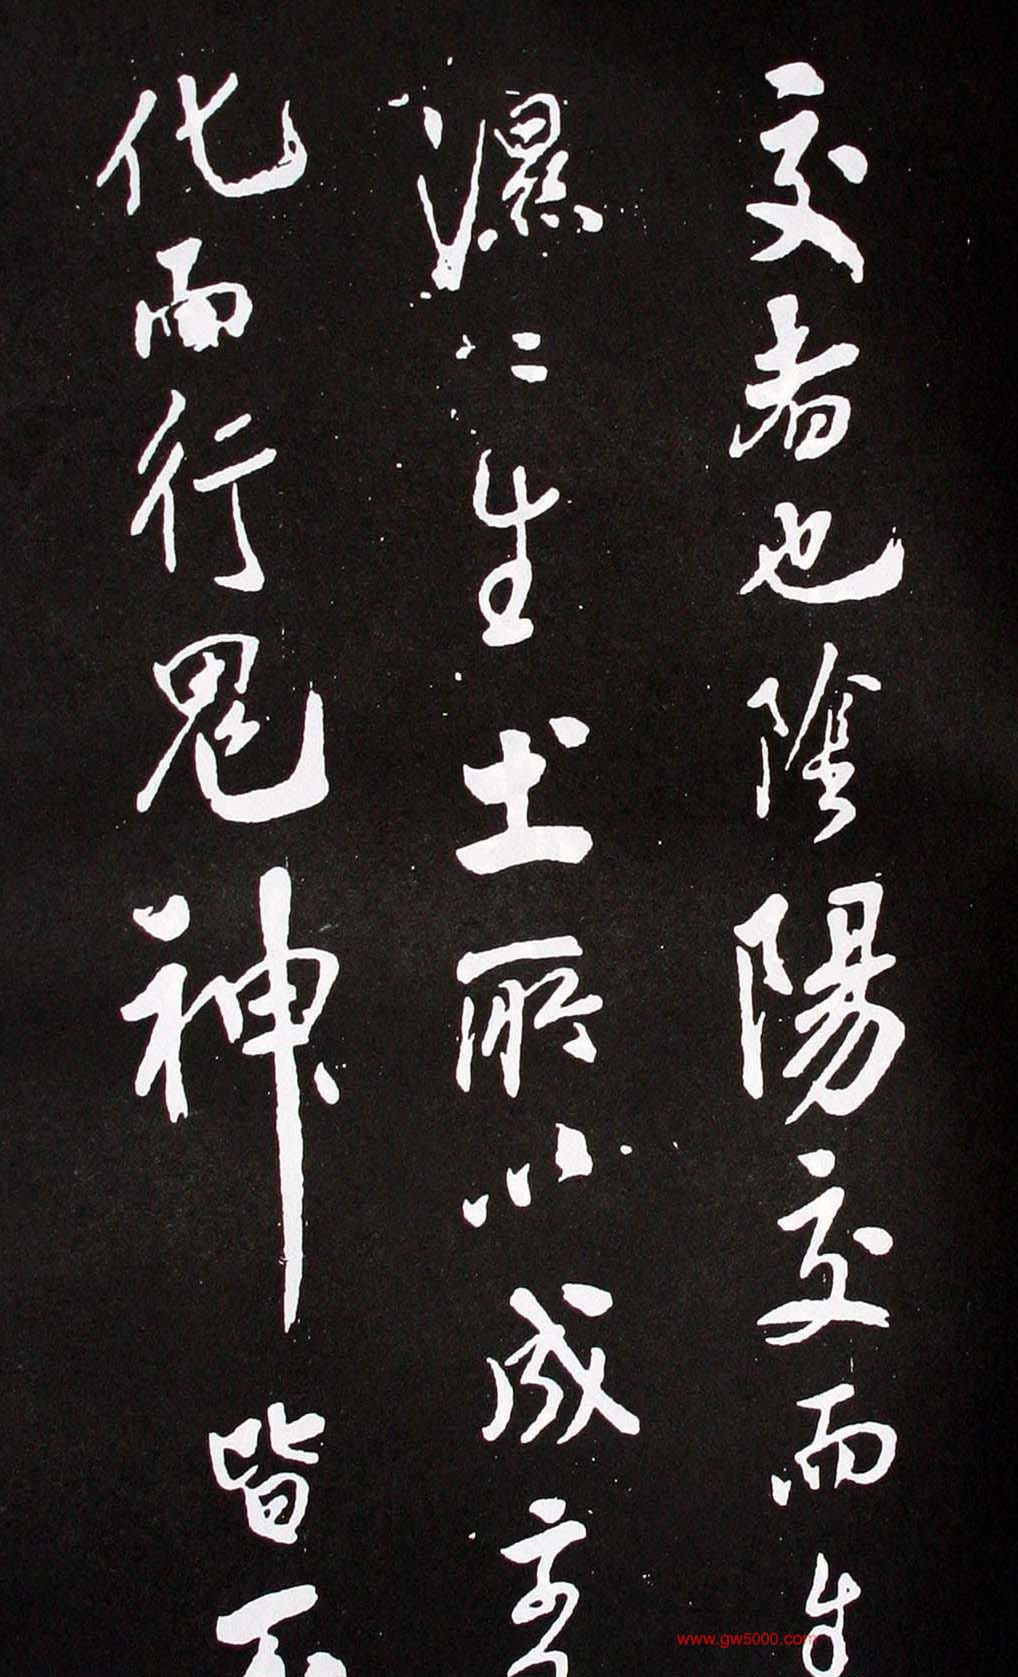 交者也陰陽交而生
濕〻生土所以成變
化而行鬼神皆不
www.gw5000.com